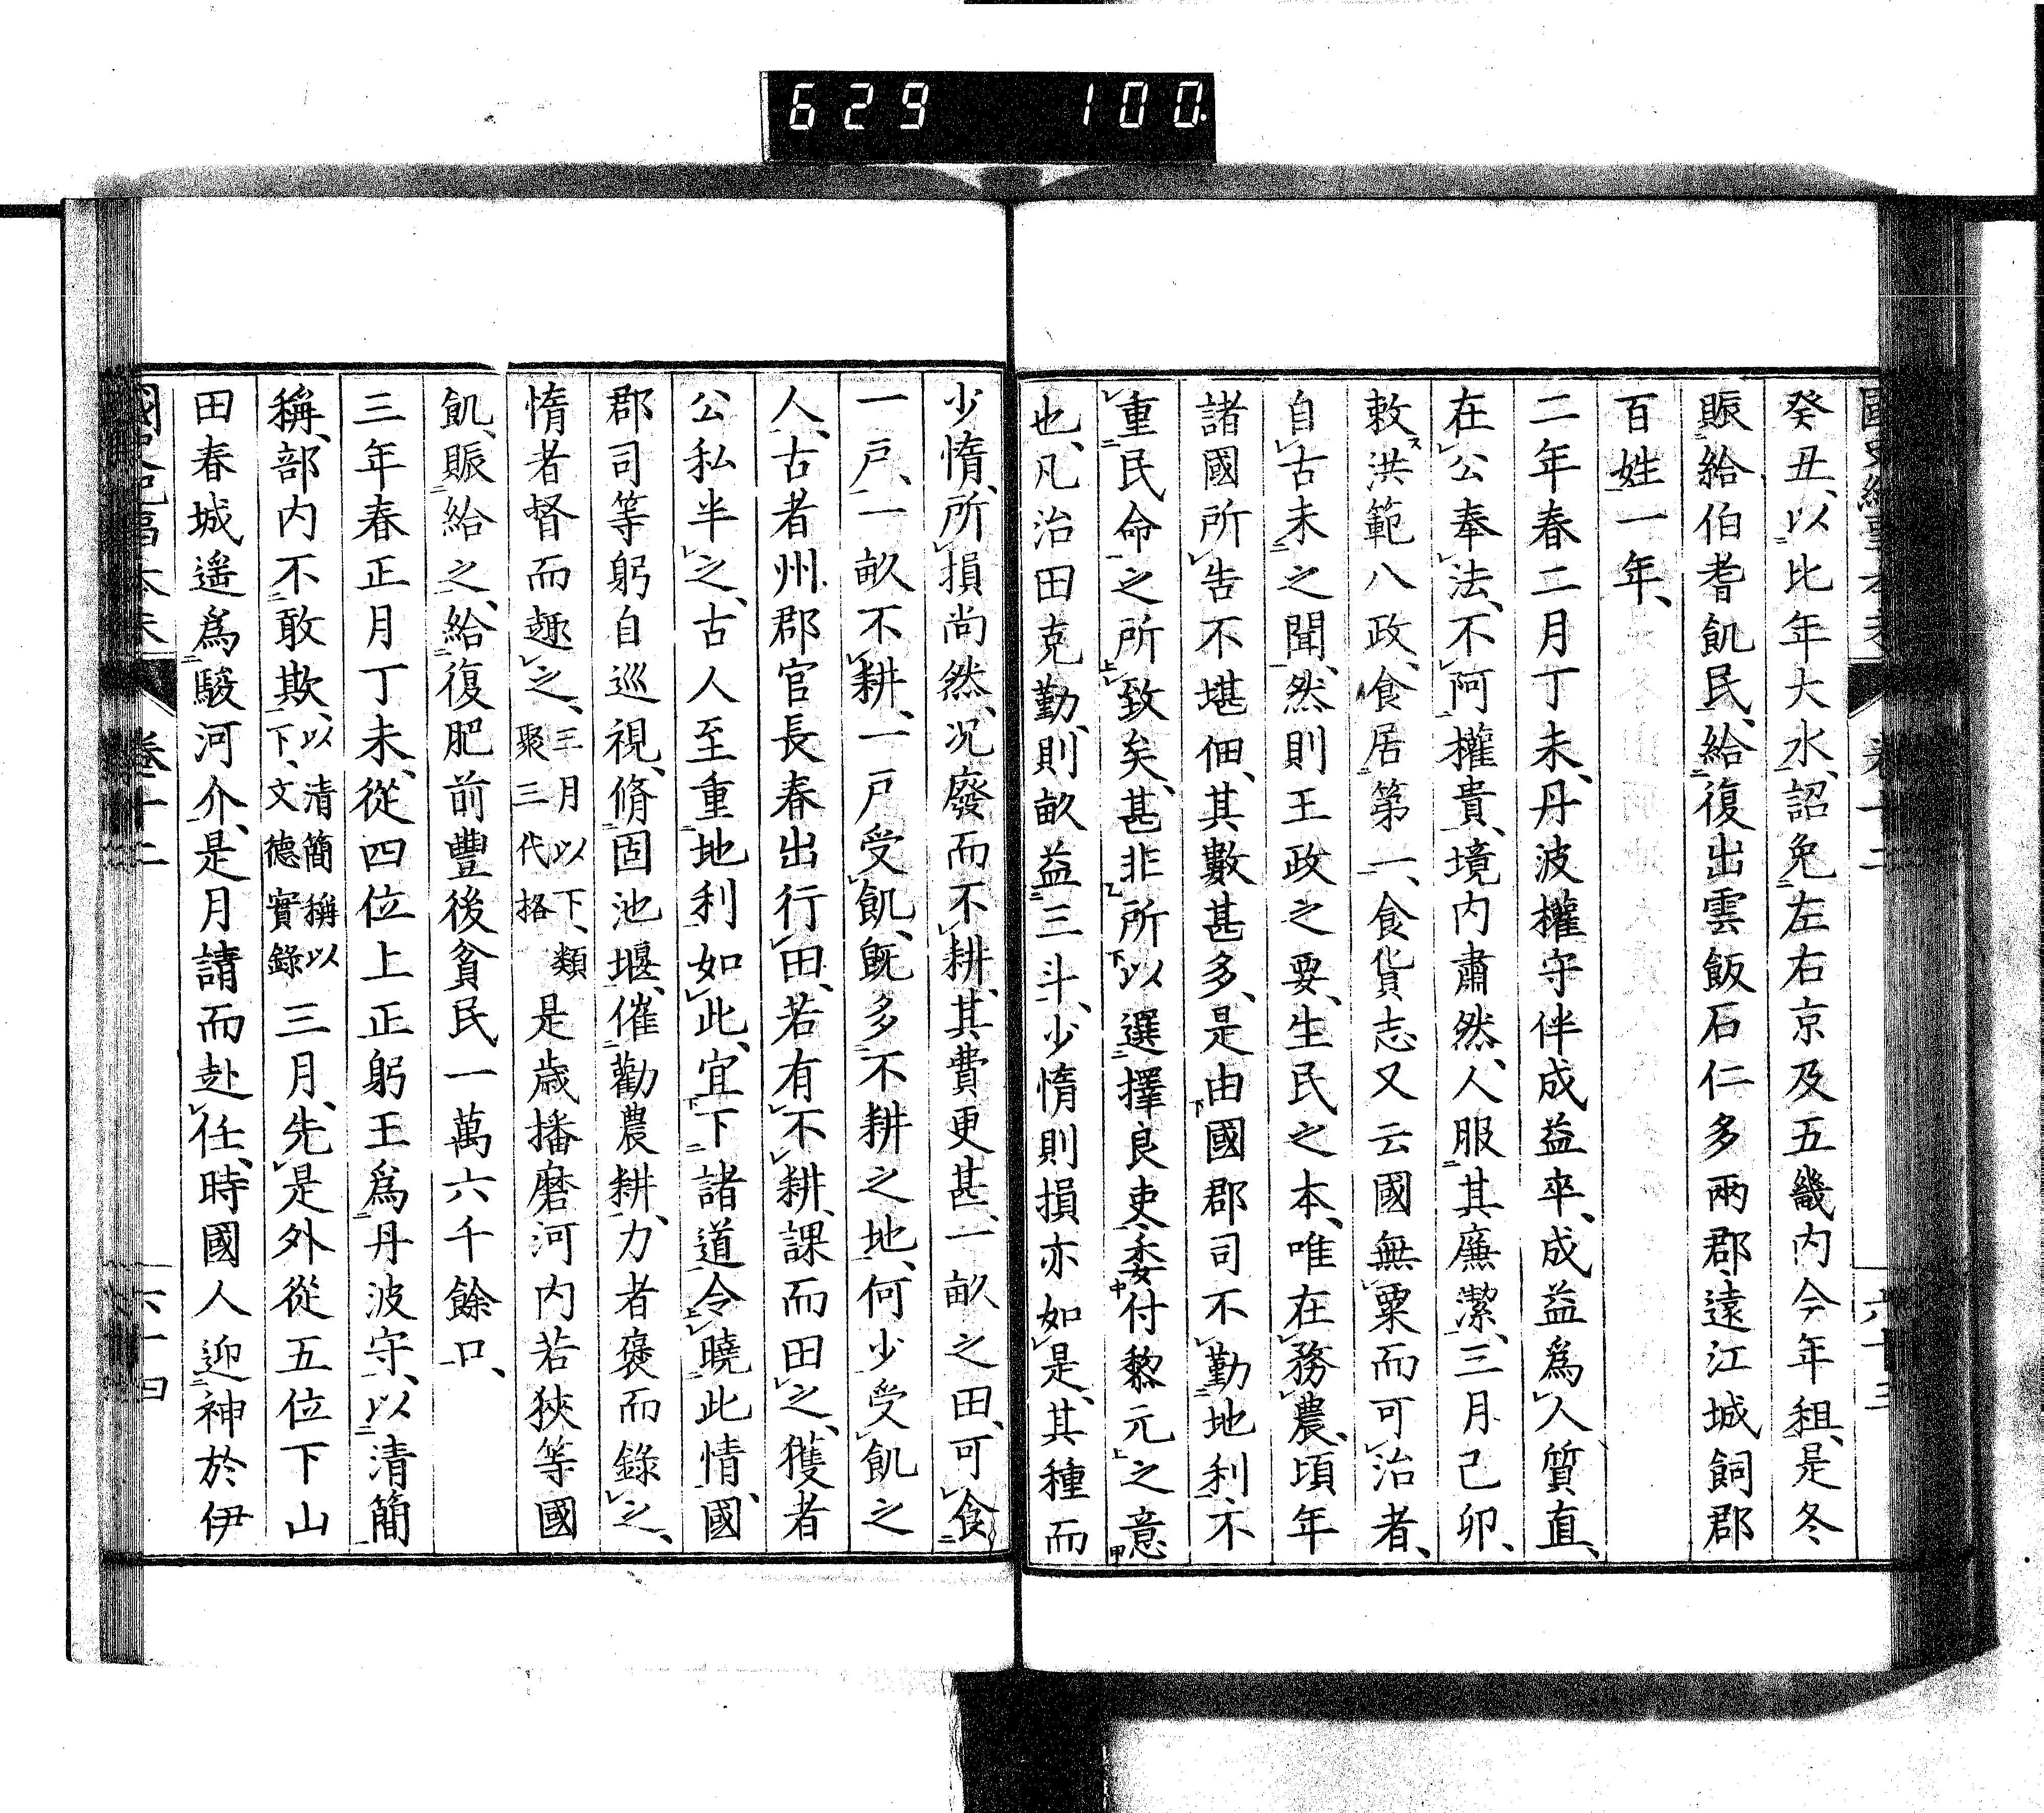 629 100
癸丑、以比年大水、詔免左右京及五畿内今年租、是冬
賑給伯耆飢民、給復出雲飯石仁多兩郡、遠江城飼郡
百姓一年、
二年春二月丁未、丹波權守伴成益卒、成益爲人質直、
在公奉法、不阿權貴、境内肅然、人服其廉潔、三月己卯、
敕洪範八政、食居第一、食貨志又云國無粟而可治者、
自古未之聞、然則王政之要、生民之本、唯在務農、頃年
諸國所告不堪佃、其數甚多、是由國郡司不勤地利不
重民命之所致矣、甚非所以選擇良吏委付黎元之意
也、凡治田克勤、則畝益三斗、少惰則損亦如是、其種而
少惰、所損尚然、况廢而不耕、其費更甚、一畝之田、可食
一戸、一畝不耕、一戸受飢、既多不耕之地、何少受飢之
人、古者州郡官長春出行田、若有不耕、課而田之、獲者
公私半之、古人至重地利如此、宜下諸道令曉此情、國
郡司等躬自巡視、脩固池堰、催勸農耕、力者褒而錄之、
惰者督而趣之、三月以下、類聚三代格 是歳播磨河内若狹等國
飢、賑給之、給復肥前豐後貧民一萬六千餘口、
三年春正月丁未、從四位上正躬王爲丹波守、以清簡
稱、部内不敢欺、以清簡稱以下、文德實錄 三月、先是外從五位下山
田春城遥爲駿河介、是月請而赴任、時國人迎神於伊
卷十二